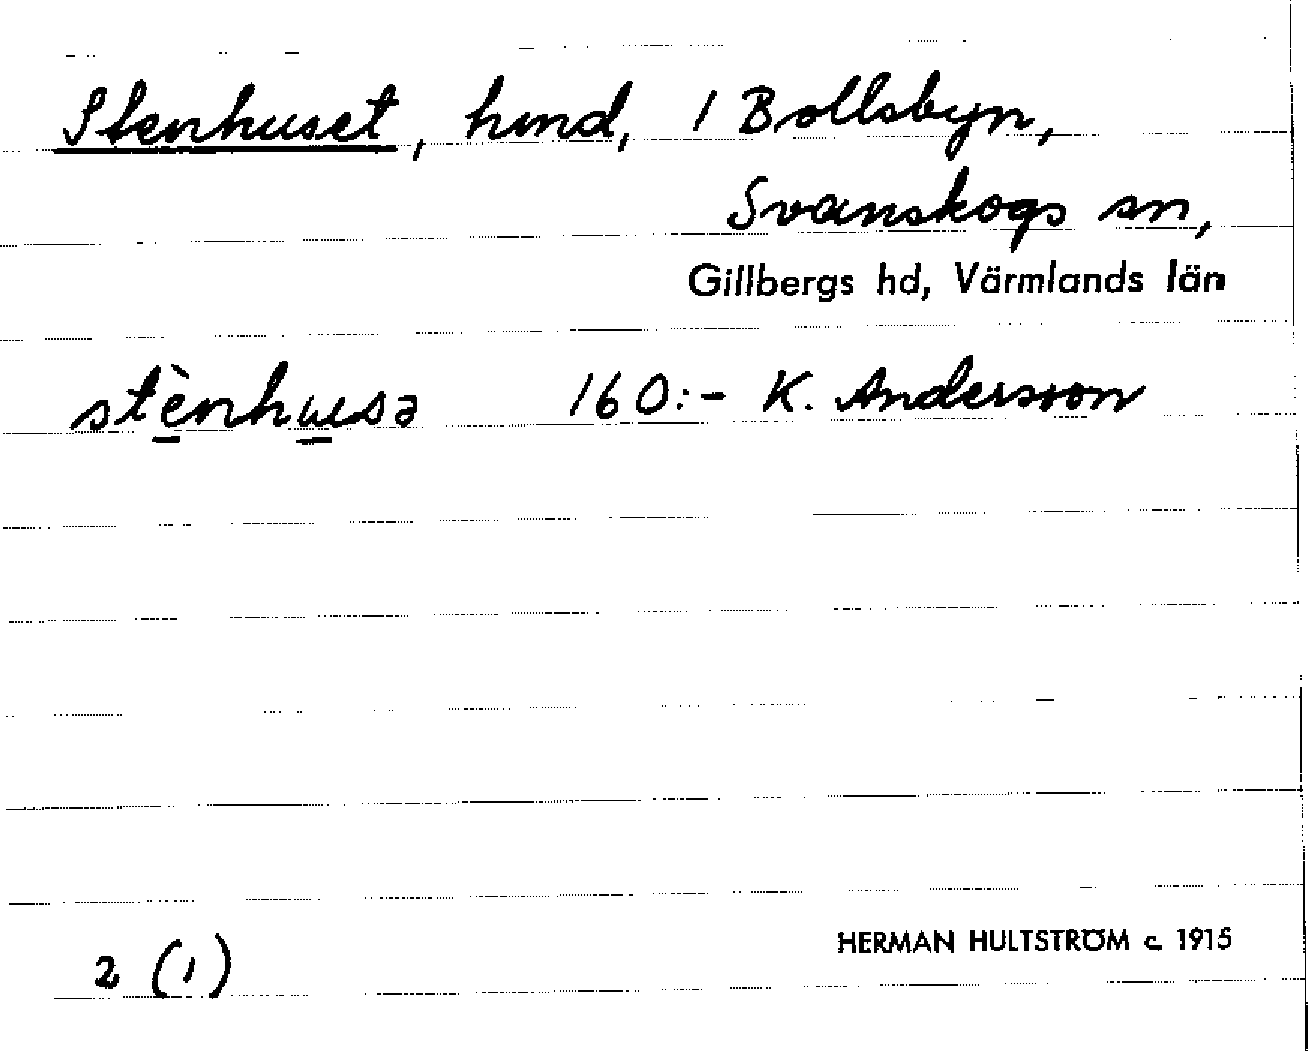 Stenhuset, hmd, 1 Bollsbyn,
Svanskogs sn,
Gillbergs hd, Värmlands län
stènhusə 160:- K. Andersson
2 (1)
HERMAN HULTSTRÖM c. 1915